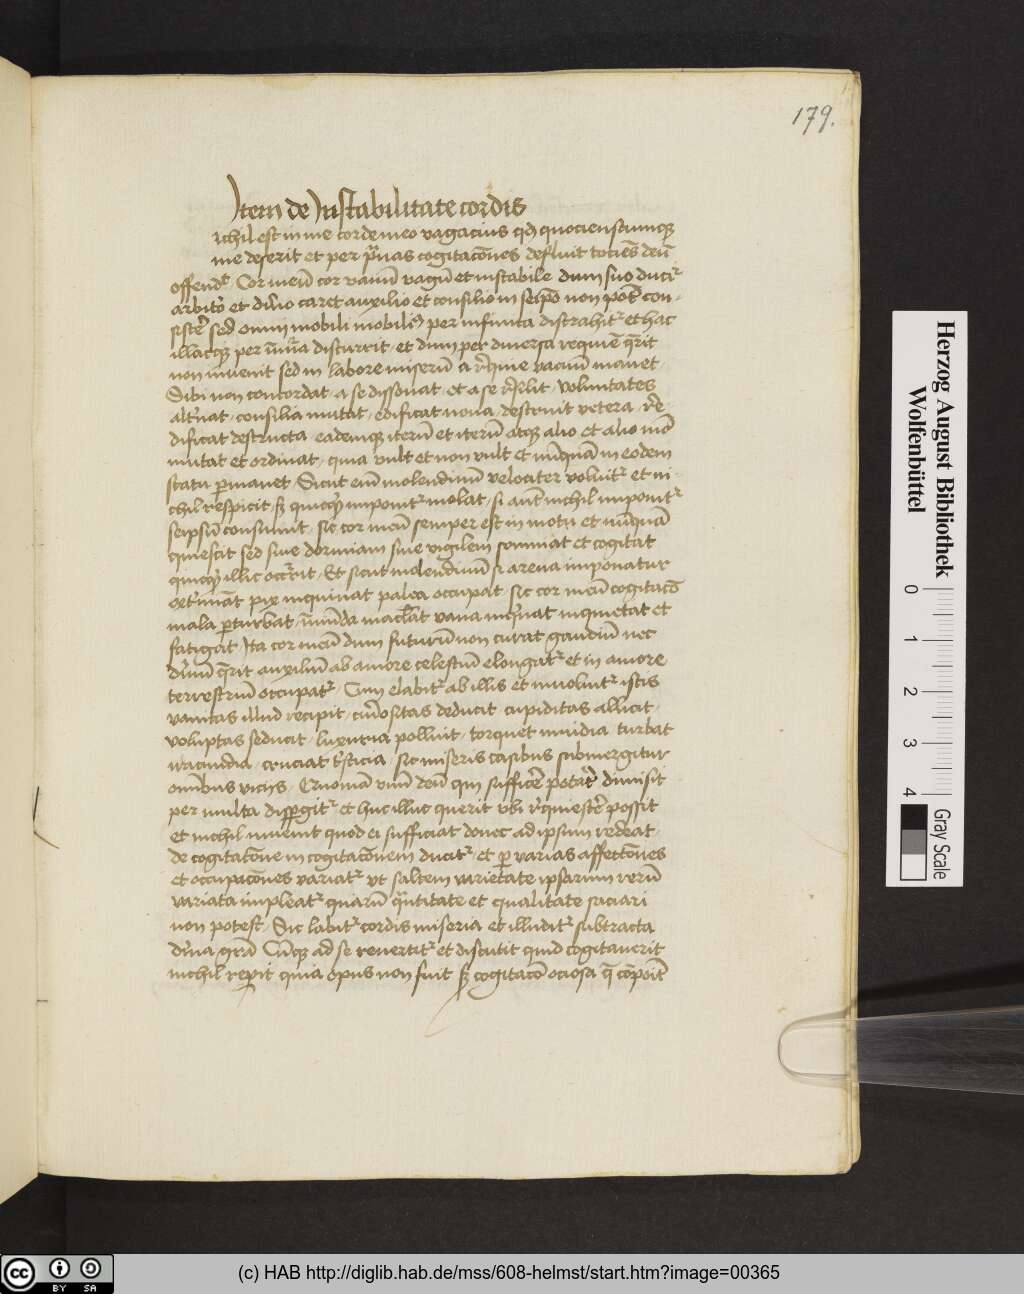 179.
Item de Instabilitate cordis
ichil est in me corde meo vagacius qd quocienscumq
me deserit et per prauas cogitacoēs defluit tociēs deū
offendt Cor meū cor vanū vagū et instabile dum suo ducitr
arbito et diuīo caret auxilio et consilio in seipō non pot con-
sistē sed omni mobili mobili9 per infinita distrahitr et hac
illacq per inūīa discurrit et dum per diuersa requiē qrit
non inuenit sed in labore miserū a reqie vacuū manet
Sibi non concordat a se dissonat et a se resilit voluntates
altnat consilia mutat edificat noua destruit vetera ree
dificat destructa eademq iterū et iterū atq alio et alio mō
mutat et ordinat quia vult et non vult et nūquā in eodem
statu pmanet Sicut eni molendinū velociter voluitr et ni-
chil respicit sz quicqd imponitr molat si aut nichil imponitr
seipsū consumit sic cor meū semper est in motu et nūquā
quiescit sed siue dormiam siue vigilem somniat et cogitat
quicqd illic occrit Et sicut molendinū si arena imponatur
extmīat pix inquinat palea occupat sic cor meū cogitacō
mala pturbat īmūda maclat vana inqetat inquietat et
fatigat Ita cor meū dum futurū non curat gaudiū nec
diuīū qrit auxiliū ab amore celestiū elongatr et in amore
terrestriū occupatr Cum elabitr ab illis et inuoluitr istis
vanitas illud recipit curiositas deducit cupiditas allicit
voluptas seducit luxuria polluit torquet inuidia turbat
iracundia cruciat tristicia sic miseris casibus submergitur
omībus vicijs Quoniā vnū deū qui sufficē potat dimisit
per multa dispgitr et huc illuc querit vbi requiestē possit
et nichil inuenit quod ei sufficiat donec ad ipsum redeat
de cogitacoē in cogitacoēm ducitr et p varias affectoēs
et occupacoēs variatr vt saltem varietate ipsarum rerū
variata impleatr quarū qntitate et qualitate saciari
non potest Sic labitr cordis miseria et illuditr subtracta
diuīa gra Cūq ad se reuertitr et discutit quid cogitauerit
nichil repit quia opus non fuit sz cogitaco ociosa q cōpoīt
Herzog August Bibliothek
Wolfenbüttel
0 1 2 3 4
Gray Scale
cc BY SA
(c) HAB http://diglib.hab.de/mss/608-helmst/start.htm?image=00365